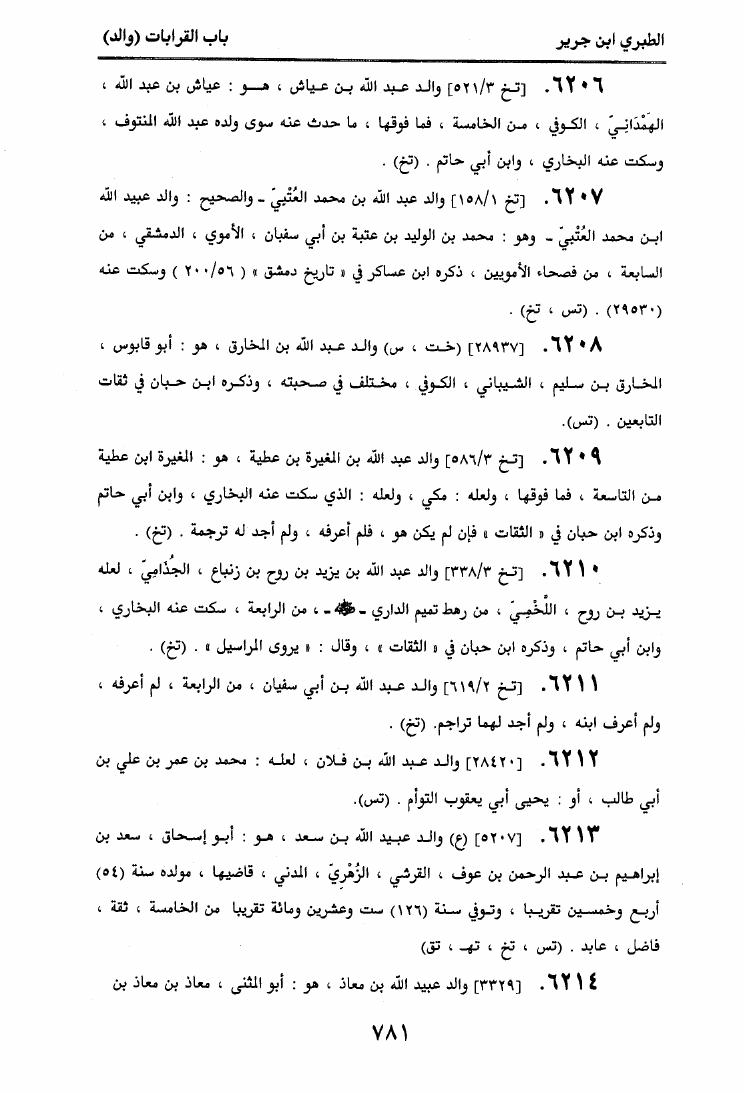 الطبري ابن جرير
باب القرابات (والد)
٦٢٠٦. [تخ ٥٢١/٣] والد عبد الله بن عياش ، هـو : عياش بن عبد الله ،
الهَمْدَانِيّ ، الكوفي ، من الخامسة ، فما فوقها ، ما حدث عنه سوى ولده عبد الله المنتوف ،
وسكت عنه البخاري ، وابن أبي حاتم . (تخ) .
٦٢٠٧. [تخ ١٥٨/١] والد عبد الله بن محمد العُتْبِيّ ـ والصحيح : والد عبيد الله
ابن محمد العُتْبِيّ ـ وهو : محمد بن الوليد بن عتبة بن أبي سفيان ، الأموي ، الدمشقي ، من
السابعة ، من فصحاء الأمويين ، ذكره ابن عساكر في « تاريخ دمشق » (٢٠٠/٥٦ ) وسكت عنه
(٢٩٥٣٠) . (تس ، تخ) .
٦٢٠٨. [٢٨٩٣٧] (خت ، س) والد عبد الله بن المخارق ، هو : أبو قابوس ،
المخارق بن سليم ، الشيباني ، الكوفي ، مختلف في صحبته ، وذكره ابن حبان في ثقات
التابعين . (تس).
٦٢٠٩. [تخ ٥٨٦/٣] والد عبد الله بن المغيرة بن عطية ، هو : المغيرة ابن عطية
من التاسعة ، فما فوقها ، ولعله : مكي ، ولعله : الذي سكت عنه البخاري ، وابن أبي حاتم
وذكره ابن حبان في « الثقات » فإن لم يكن هو ، فلم أعرفه ، ولم أجد له ترجمة . (تخ) .
٦٢١٠. [تخ ٣٣٨/٣] والد عبد الله بن يزيد بن روح بن زنباع ، الجُذَامِيّ ، لعله
يزيد بن روح ، اللَّخْمِيّ ، من رهط تميم الداري ـ ﷺ ـ ، من الرابعة ، سكت عنه البخاري ،
وابن أبي حاتم ، وذكره ابن حبان في « الثقات » ، وقال : « يروى المراسيل » . (تخ) .
٦٢١١. [تخ ٦١٩/٢] والد عبد الله بن أبي سفيان ، من الرابعة ، لم أعرفه ،
ولم أعرف ابنه ، ولم أجد لهما تراجم. (تخ) .
٦٢١٢. [٢٨٤٢٠] والد عبد الله بن فلان ، لعله : محمد بن عمر بن علي بن
أبي طالب ، أو : يحيى أبي يعقوب التوأم . (تس).
٦٢١٣. [٥٢٠٧] (ع) والد عبيد الله بن سعد ، هو : أبو إسحاق ، سعد بن
إبراهيم بن عبد الرحمن بن عوف ، القرشي ، الزُهْرِيّ ، المدني ، قاضيها ، مولده سنة (٥٤)
أربع وخمسين تقريبا ، وتوفي سنة (١٢٦) ست وعشرين ومائة تقريبا من الخامسة ، ثقة ،
فاضل ، عابد . (تس ، تخ ، تهـ ، تق)
٦٢١٤. [٣٣٢٩] والد عبيد الله بن معاذ ، هو : أبو المثنى ، معاذ بن معاذ بن
٧٨١